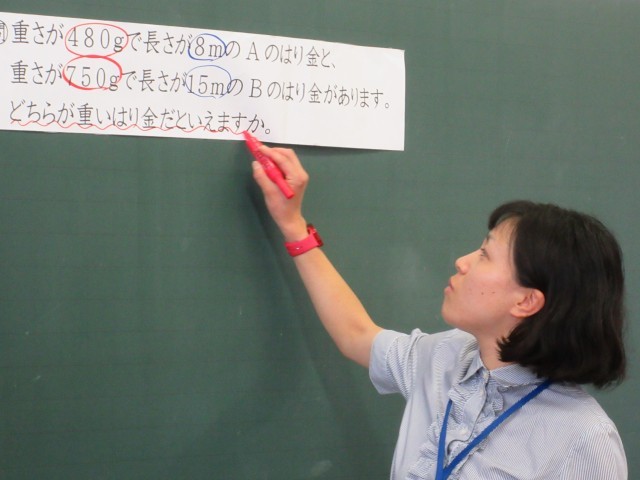 問重さが480gで長さが8mのAのはり金と、
重さが750gで長さが15mのBのはり金があります。
どちらが重いはり金だといえますか。